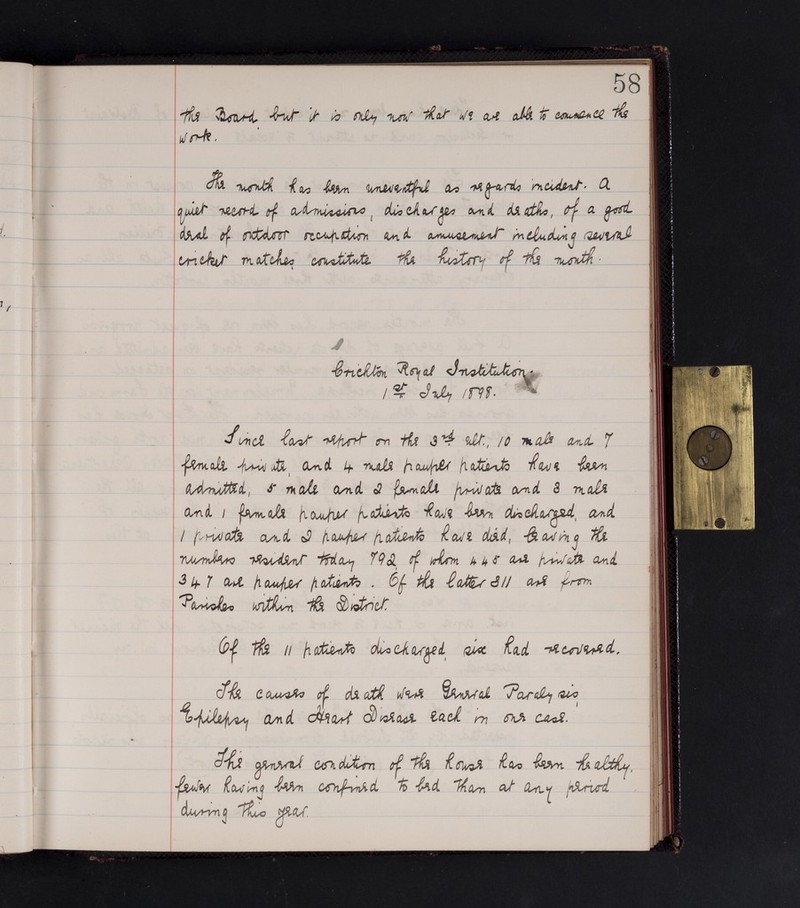 58
the Board but it is only now that we are able to commence the
work.
The month has been uneventful as regards incident. A
quiet record of admissions, discharges and deaths, of a good
deal of outdoor occupation and amusement including several
cricket matches constitute the history of the month.
Crichton Royal Institution.
1st July 1898.
Since last report on the 3rd ult., 10 male and 7
female private, and 4 male pauper patients have been
admitted, 5 male and 2 female private and 3 male
and 1 female pauper patients have been discharged, and
1 private and 2 pauper patients have died, leaving the
numbers resident today 792 of whom 445 are private and
347 are pauper patients. Of the latter 311 are from
Parishes within the District.
Of the 11 patients discharged, six had recovered.
The causes of death were General Paralysis,
Epilepsy and Heart Disease each in one case.
The general condition of the house has been healthy,
fewer having been confined to bed than at any period
during this year.